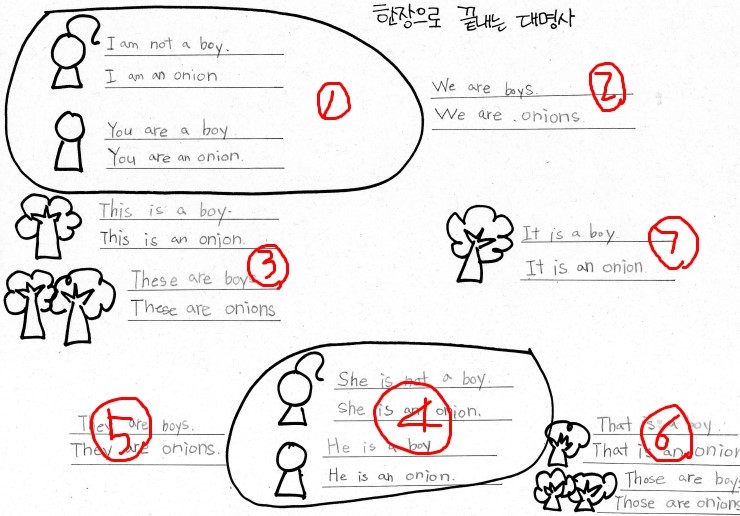 한장으로 끝내는 대명사
I am not a boy.
I am an onion
You are a boy
You are an onion.
1
We are boys.
We are onions.
2
This is a boy.
This is an onion.
These are boys
These are onions
3
It is a boy.
It is an onion.
7
She is not a boy.
She is an onion.
He is a boy
He is an onion.
4
They are boys.
They are onions.
5
That is a boy.
That is an onion
Those are boys
Those are onions
6